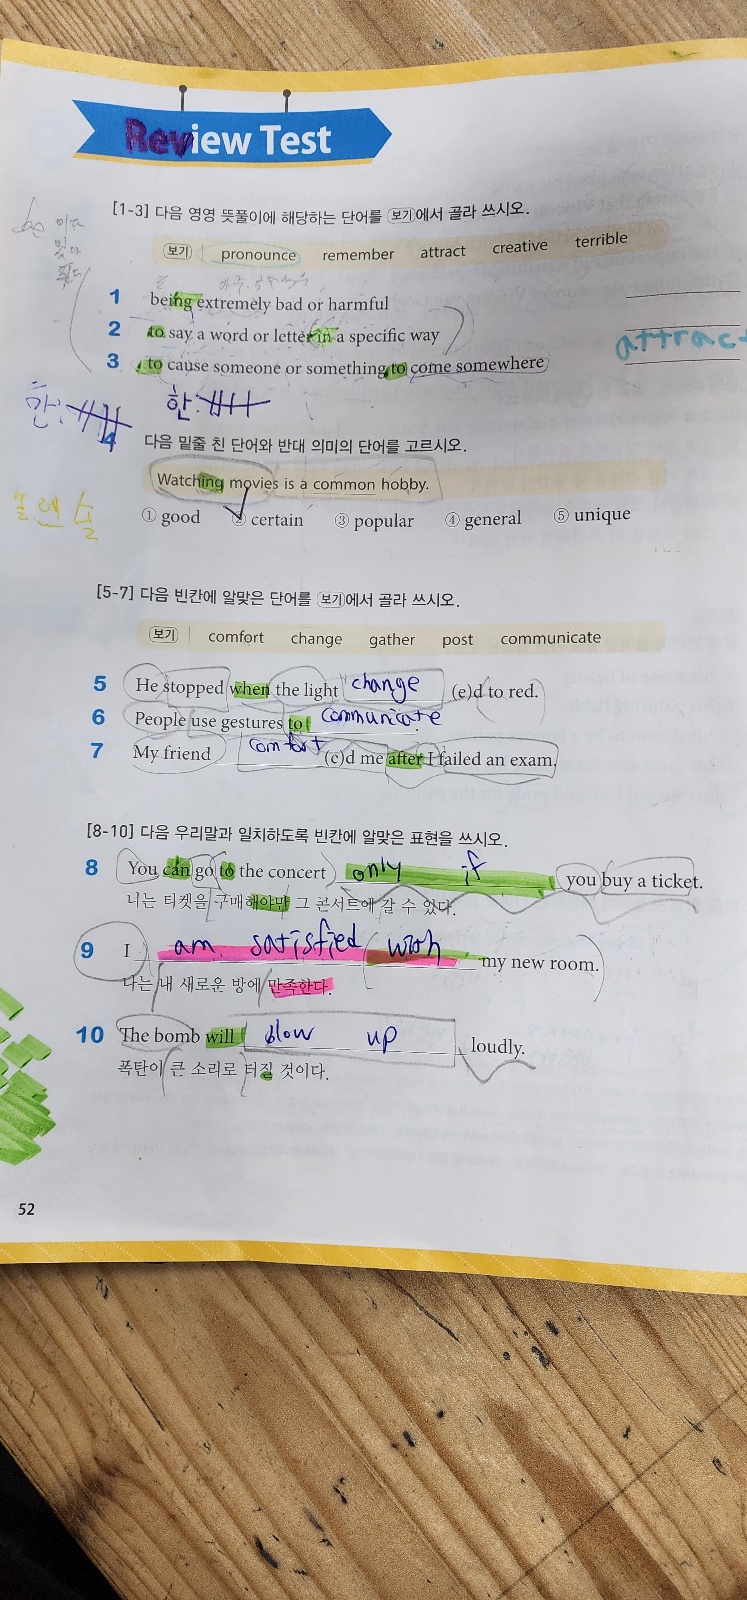 Review Test
[1-3] 다음 영영 뜻풀이에 해당하는 단어를 보기에서 골라 쓰시오.
be 이다
있다
되다
보기 pronounce remember attract creative terrible
1 being extremely bad or harmful
2 to say a word or letter in a specific way
3 to cause someone or something to come somewhere
attract
한: 한:
4 다음 밑줄 친 단어와 반대 의미의 단어를 고르시오.
Watching movies is a common hobby.
① good ② certain ③ popular ④ general ⑤ unique
[5-7] 다음 빈칸에 알맞은 단어를 보기에서 골라 쓰시오.
보기 comfort change gather post communicate
5 He stopped when the light change (e)d to red.
6 People use gestures to communicate.
7 My friend comfort (e)d me after I failed an exam.
[8-10] 다음 우리말과 일치하도록 빈칸에 알맞은 표현을 쓰시오.
8 You can go to the concert only if you buy a ticket.
너는 티켓을 구매해야만 그 콘서트에 갈 수 있다.
9 I am satisfied with my new room.
나는 내 새로운 방에 만족한다.
10 The bomb will blow up loudly.
폭탄이 큰 소리로 터질 것이다.
52